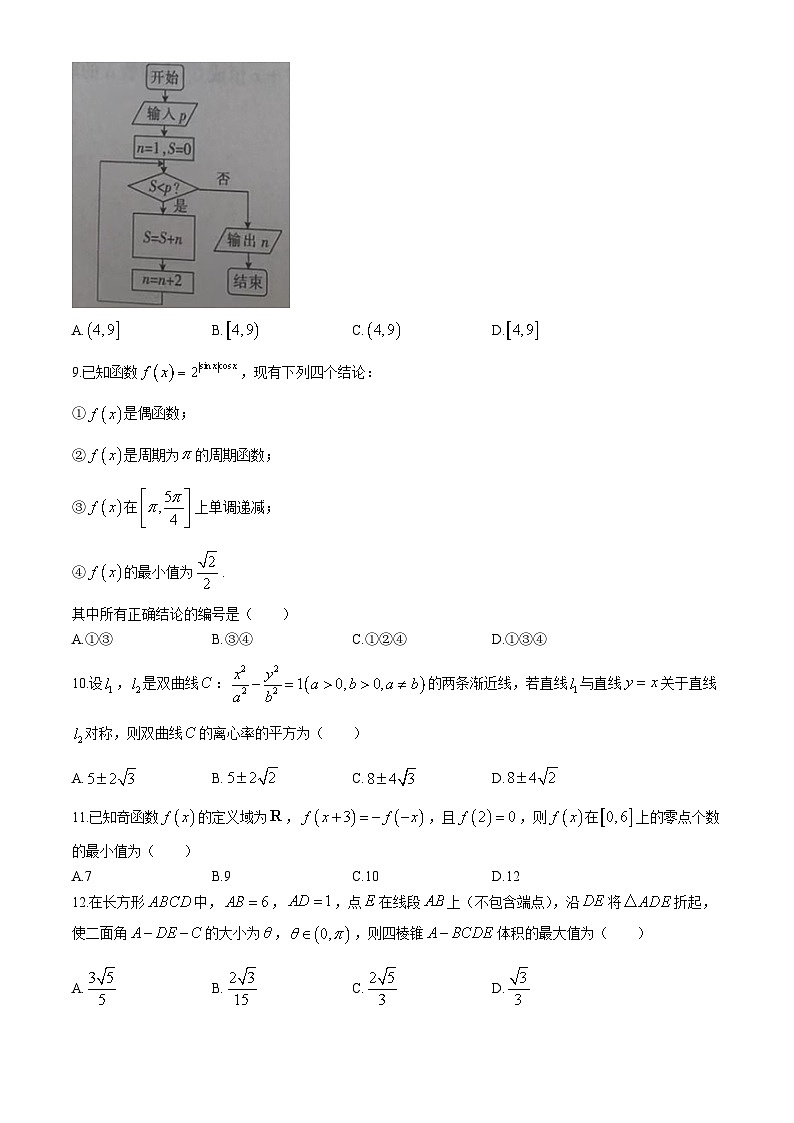 开始
输入 p
n=1,S=0
S<p?
否
是
S=S+n
输出 n
n=n+2
结束
A.(4,9] B.[4,9) C.(4,9) D.[4,9]
9.已知函数 f(x)=2^{|sinx|cosx},现有下列四个结论:
① f(x)是偶函数;
② f(x)是周期为π的周期函数;
③ f(x)在[π,5π/4]上单调递减;
④ f(x)的最小值为√2/2.
其中所有正确结论的编号是( )
A.①③ B.③④ C.①②④ D.①③④
10.设l₁,l₂是双曲线C:x²/a²-y²/b²=1(a>0,b>0,a≠b)的两条渐近线,若直线l₁与直线y=x关于直线
l₂对称,则双曲线C的离心率的平方为( )
A.5±2√3 B.5±2√2 C.8±4√3 D.8±4√2
11.已知奇函数f(x)的定义域为R,f(x+3)=-f(-x),且f(2)=0,则f(x)在[0,6]上的零点个数
的最小值为( )
A.7 B.9 C.10 D.12
12.在长方形ABCD中,AB=6,AD=1,点E在线段AB上(不包含端点),沿DE将△ADE折起,
使二面角A-DE-C的大小为θ,θ∈(0,π),则四棱锥A-BCDE体积的最大值为( )
A.3√5/5 B.2√3/15 C.2√5/3 D.√3/3